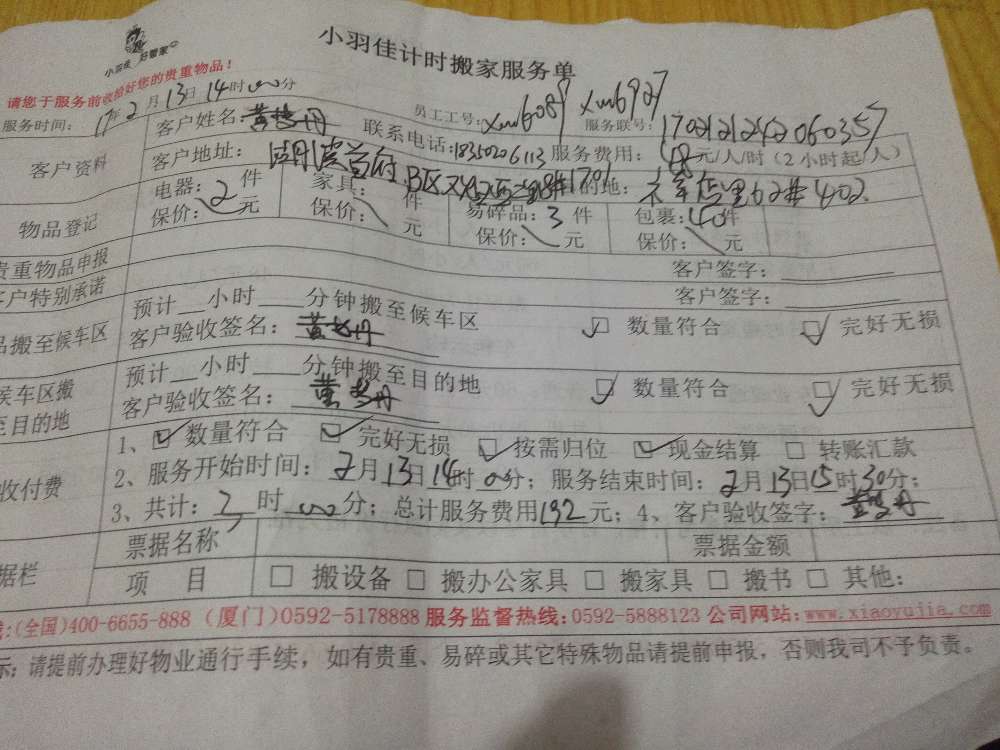 小羽佳 好管家
小羽佳计时搬家服务单
请您于服务前收拾好您的贵重物品！
服务时间：17年2月13日14时00分 员工工号：xm6089 xm6927 服务联号：1702121242060357
客户资料 客户姓名：黄梦丹 联系电话：18350206113 服务费用：48元/人/时（2小时起/人）
客户地址： B区 1701 目的地： 402
物品登记 电器：2件 家具： 件 易碎品：3件 包裹：40件
保价： 元 保价： 元 保价： 元 保价： 元
贵重物品申报 客户签字：
客户特别承诺 客户签字：
品搬至候车区 预计 小时 分钟搬至候车区
客户验收签名：黄梦丹 ☑ 数量符合 ☑ 完好无损
候车区搬至目的地 预计 小时 分钟搬至目的地
客户验收签名：黄梦丹 ☑ 数量符合 ☑ 完好无损
收付费 1、☑ 数量符合 ☑ 完好无损 ☑ 按需归位 ☑ 现金结算 □ 转账汇款
2、服务开始时间：2月13日14时00分；服务结束时间：2月13日15时30分；
3、共计：2时00分；总计服务费用192元；4、客户验收签字：黄梦丹
据栏 票据名称 票据金额
项 目 □ 搬设备 □ 搬办公家具 □ 搬家具 □ 搬书 □ 其他：
(全国)400-6655-888 (厦门)0592-5178888 服务监督热线：0592-5888123 公司网站：www.xiaoyujia.com
示：请提前办理好物业通行手续，如有贵重、易碎或其它特殊物品请提前申报，否则我司不予负责。